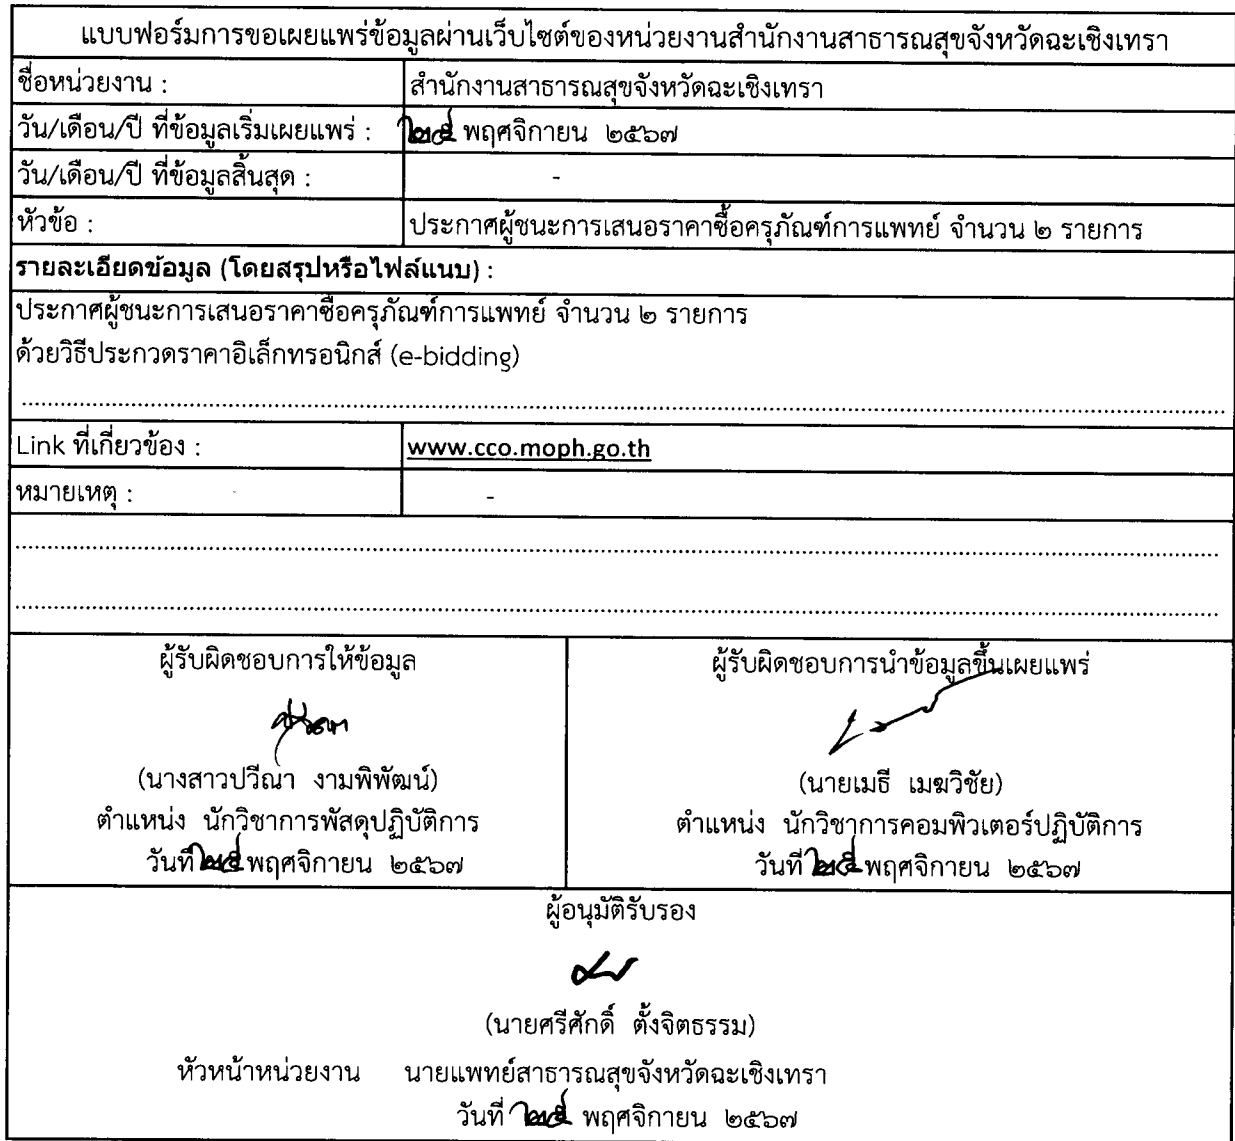 แบบฟอร์มการขอเผยแพร่ข้อมูลผ่านเว็บไซต์ของหน่วยงานสำนักงานสาธารณสุขจังหวัดฉะเชิงเทรา
ชื่อหน่วยงาน : สำนักงานสาธารณสุขจังหวัดฉะเชิงเทรา
วัน/เดือน/ปี ที่ข้อมูลเริ่มเผยแพร่ : พฤศจิกายน ๒๕๖๗
วัน/เดือน/ปี ที่ข้อมูลสิ้นสุด : -
หัวข้อ : ประกาศผู้ชนะการเสนอราคาซื้อครุภัณฑ์การแพทย์ จำนวน ๒ รายการ
รายละเอียดข้อมูล (โดยสรุปหรือไฟล์แนบ) :
ประกาศผู้ชนะการเสนอราคาซื้อครุภัณฑ์การแพทย์ จำนวน ๒ รายการ
ด้วยวิธีประกวดราคาอิเล็กทรอนิกส์ (e-bidding)
Link ที่เกี่ยวข้อง : www.cco.moph.go.th
หมายเหตุ : -
ผู้รับผิดชอบการให้ข้อมูล
(นางสาวปวีณา งามพิพัฒน์)
ตำแหน่ง นักวิชาการพัสดุปฏิบัติการ
วันที่ พฤศจิกายน ๒๕๖๗
ผู้รับผิดชอบการนำข้อมูลขึ้นเผยแพร่
(นายเมธี เมฆวิชัย)
ตำแหน่ง นักวิชาการคอมพิวเตอร์ปฏิบัติการ
วันที่ พฤศจิกายน ๒๕๖๗
ผู้อนุมัติรับรอง
(นายศรีศักดิ์ ตั้งจิตธรรม)
หัวหน้าหน่วยงาน นายแพทย์สาธารณสุขจังหวัดฉะเชิงเทรา
วันที่ พฤศจิกายน ๒๕๖๗